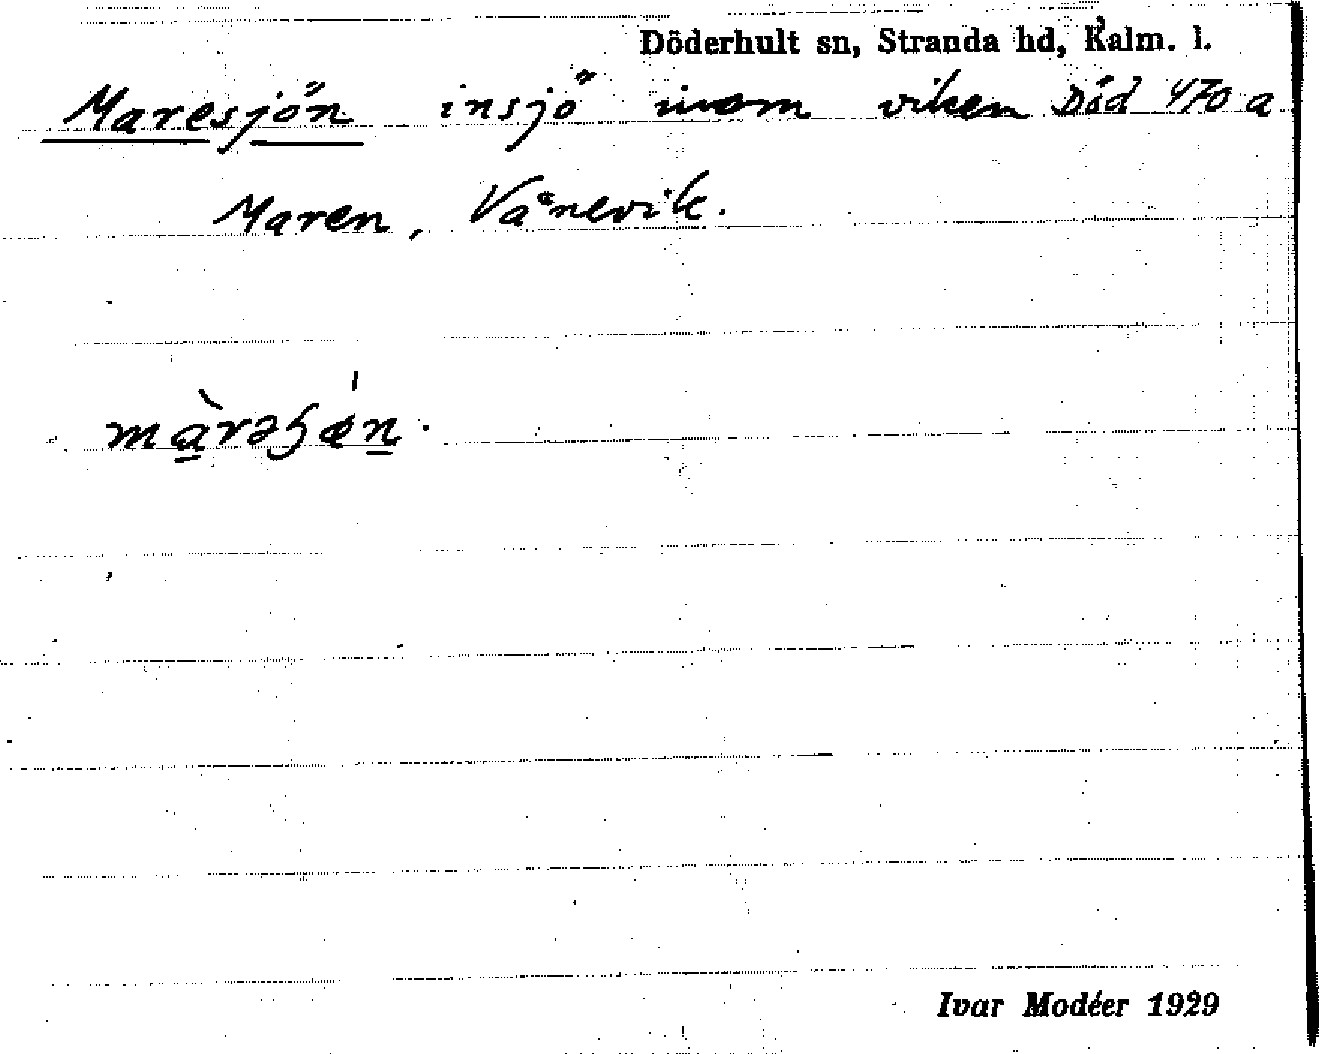 Döderhult sn, Stranda hd, Kalm. l.
Maresjön insjö inom viken Död 470 a
Maren, Vånevik.
Ivar Modéer 1929